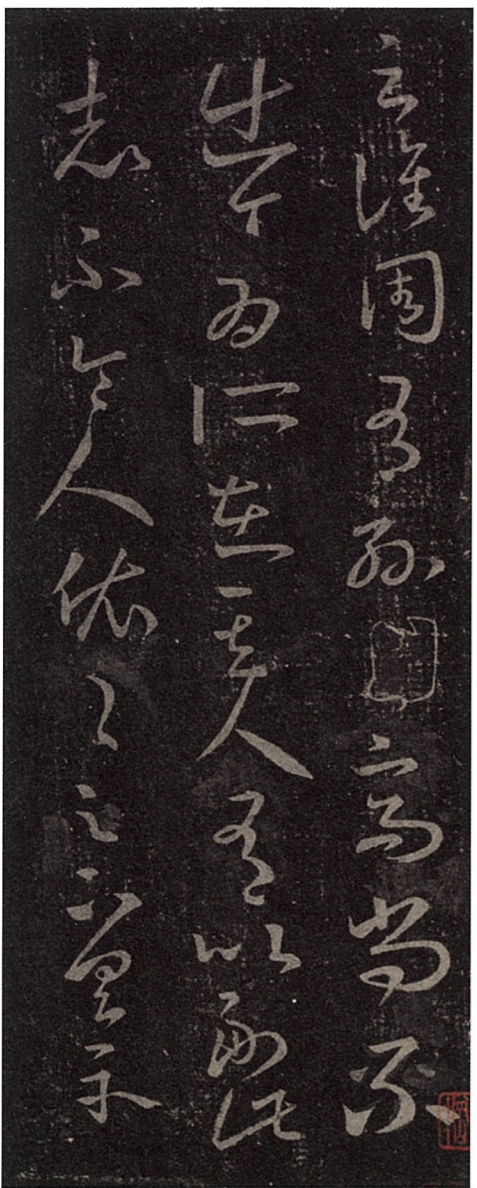 云譙周有孫高尚不
出今為所在其人有以副此
志不令人依依足下具示